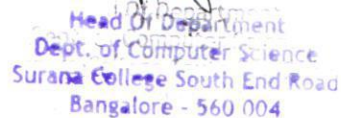 Head Of Department
Dept. of Computer Science
Surana College South End Road
Bangalore - 560 004